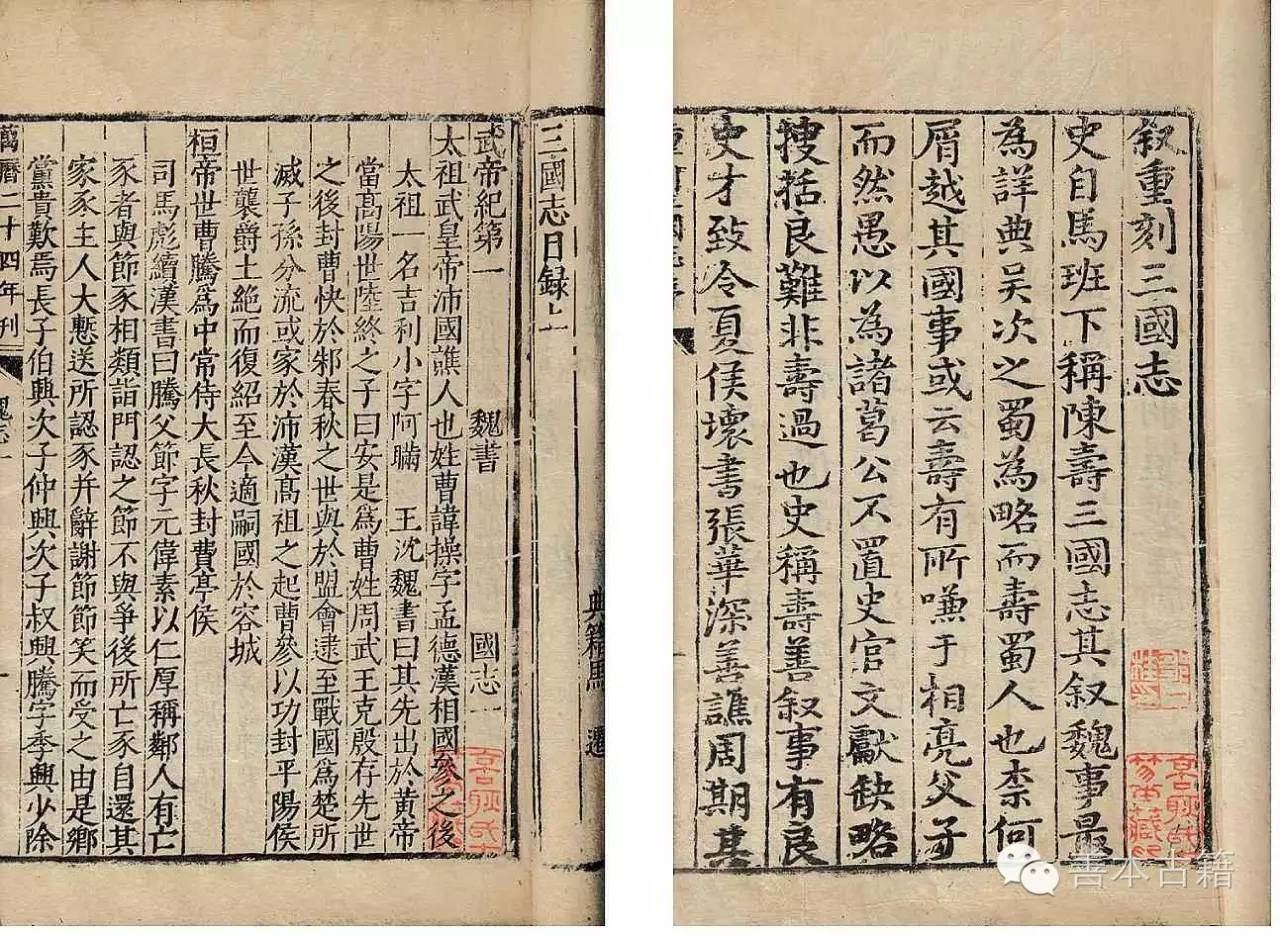 叙重刻三國志
史自馬班下稱陳壽三國志其叙魏事最
為詳典吳次之蜀為略而壽蜀人也柰何
屑越其國事或云壽有所嗛于相亮父子
而然愚以為諸葛公不置史官文獻缺略
搜括良難非壽過也史稱壽善叙事有良
史才致令夏侯壞書張華深善譙周期其
善本古籍
典籍馬 遷
三國志目録上
武帝紀第一 魏書 國志一
太祖武皇帝沛國譙人也姓曹諱操字孟德漢相國參之後
太祖一名吉利小字阿瞞 王沈魏書曰其先出於黄帝
當高陽世陸終之子曰安是為曹姓周武王克殷存先世
之後封曹俠於邾春秋之世與於盟會逮至戰國為楚所
滅子孫分流或家於沛漢高祖之起曹參以功封平陽侯
世襲爵土絶而復紹至今適嗣國於容城
桓帝世曹騰爲中常侍大長秋封費亭侯
司馬彪續漢書曰騰父節字元偉素以仁厚稱鄰人有亡
豕者與節豕相類詣門認之節不與爭後所亡豕自還其
家豕主人大慙送所認豕幷辭謝節節笑而受之由是鄉
黨貴歎焉長子伯興次子仲興次子叔興騰字季興少除
萬曆二十四年刊 魏志一